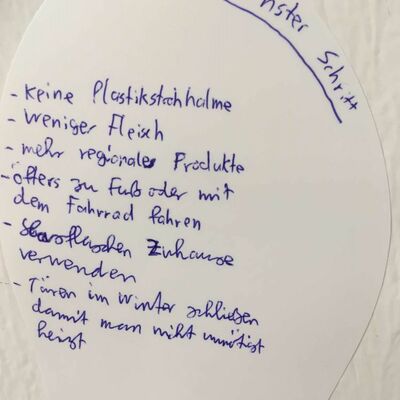 nster Schritt
- Keine Plastikstohhalme
- Weniger Fleisch
- mehr regionale Produkte
- öfters zu Fuß oder mit
dem Fahrrad fahren
- Zuhause
verwenden
- Türen im Winter schließen
damit man nicht unnötigt
heizt